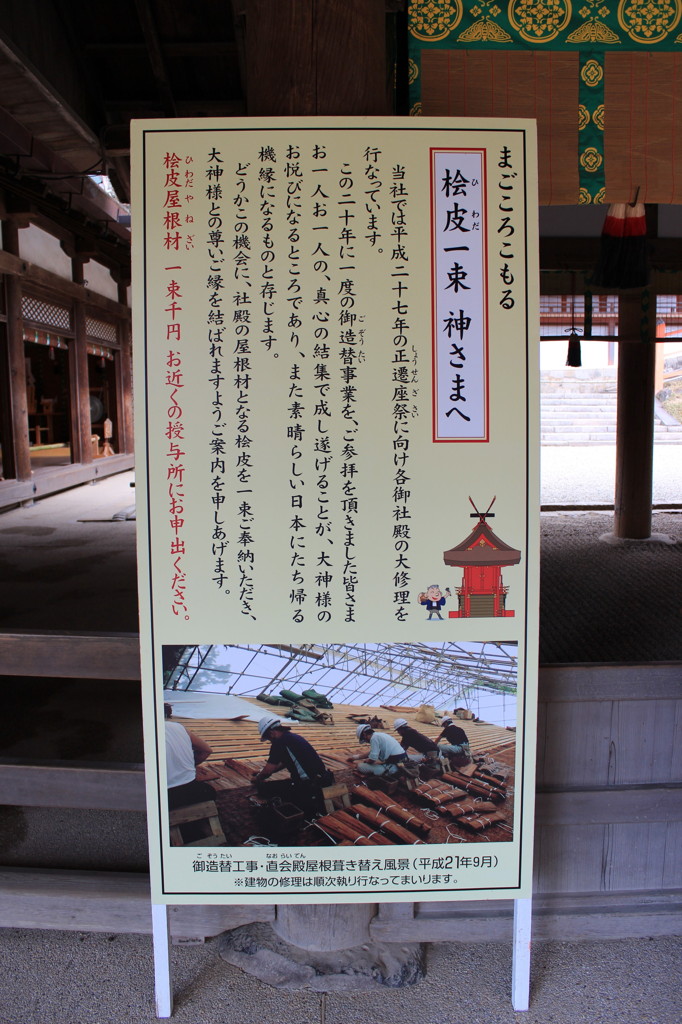 まごころこもる
桧皮一束 神さまへ
ひ わだ
当社では平成二十七年の正遷座祭に向け各御社殿の大修理を
しょうせんざさい
行なっています。
この二十年に一度の御造替事業を、ご参拝を頂きました皆さま
ごぞうたい
お一人お一人の、真心の結集で成し遂げることが、大神様の
お悦びになるところであり、また素晴らしい日本にたち帰る
機縁になるものと存じます。
どうかこの機会に、社殿の屋根材となる桧皮を一束ご奉納いただき、
大神様との尊いご縁を結ばれますようご案内を申しあげます。
桧皮屋根材 一束千円 お近くの授与所にお申出ください。
ひわだやねざい
ごぞうたい なおらいでん
御造替工事・直会殿屋根葺き替え風景(平成21年9月)
※建物の修理は順次執り行なってまいります。